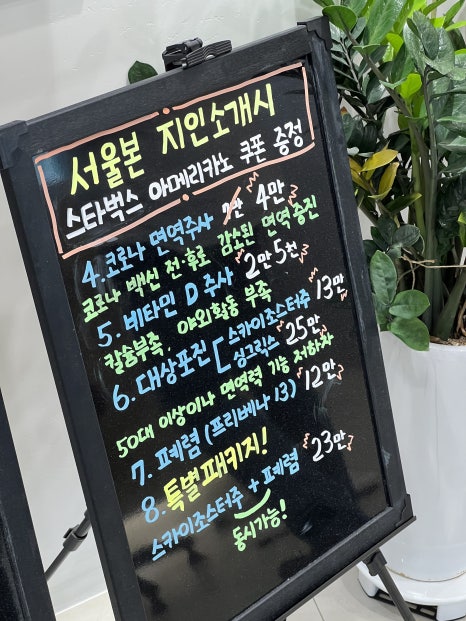 서울본 지인소개시
스타벅스 아메리카노 쿠폰 증정
4. 코로나 면역주사 4만
코로나 백신 전·후로 감소된 면역 증진
5. 비타민 D 주사 2만 5천
칼슘부족, 야외활동 부족
6. 대상포진 [ 스카이조스터주 13만
싱그릭스 25만
50대 이상이나 면역력 기능 저하자
7. 폐렴 (프리베나 13) 12만
8. 특별패키지!
스카이조스터주 + 폐렴 23만
동시가능!